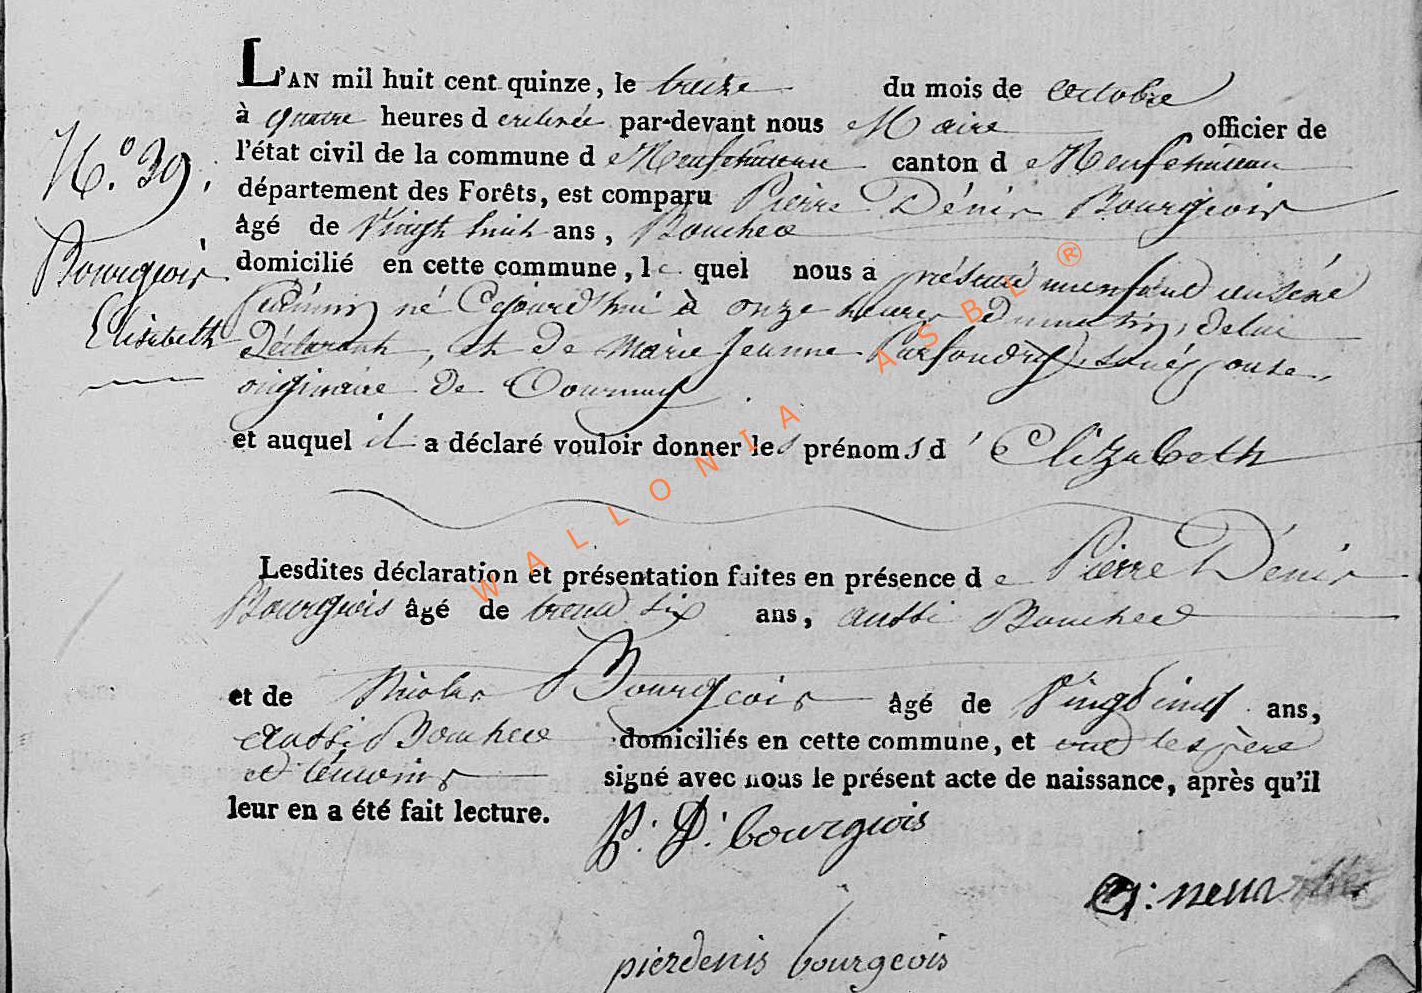 L'AN mil huit cent quinze, le treize du mois de octobre
à quatre heures d de relevée par-devant nous Maire officier de
l'état civil de la commune d e Neufchateau canton d e Neufchateau
N.º 39.
département des Forêts, est comparu Pierre Dénis Bourgeois
âgé de Vingt huit ans, Boucher
Bourgeois
domicilié en cette commune, le quel nous a présenté un enfant du sexe
Elisabeth
féminin né Cejourd'hui à onze heures du matin, de lui
Déclarant, et de Marie Jeanne son épouse,
originaire de Tournay
et auquel il a déclaré vouloir donner les prénoms d' Elizabeth
Lesdites déclaration et présentation faites en présence d e Pierre Dénis
Bourgeois âgé de trente six ans, aussi Boucher
et de Nicolas Bourgeois âgé de Vingt cinq ans,
aussi Boucher domiciliés en cette commune, et ont les père
et témoins signé avec nous le présent acte de naissance, après qu'il
leur en a été fait lecture.
P. D. bourgeois
pierdenis bourgeois
WALLONIA ASBL ®